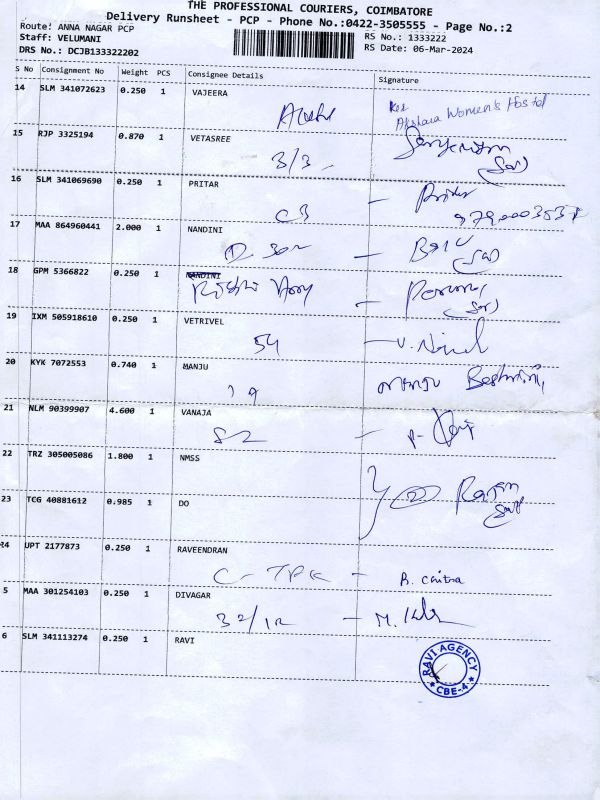 THE PROFESSIONAL COURIERS, COIMBATORE
Delivery Runsheet - PCP - Phone No.:0422-3505555 - Page No.:2
Route: ANNA NAGAR PCP
RS No.: 1333222
Staff: VELUMANI
RS Date: 06-Mar-2024
DRS No.: DCJB133322202
S No Consignment No Weight PCS Consignee Details Signature
14 SLM 341072623 0.250 1 VAJEERA
Akshara Women's Hostel
15 RJP 3325194 0.870 1 VETASREE
3/3
16 SLM 341069690 0.250 1 PRITAR
C3
17 MAA 864960441 2.000 1 NANDINI
D 302
18 GPM 5366822 0.250 1 NANDINI
19 IXM 505918610 0.250 1 VETRIVEL
54
20 KYK 7072553 0.740 1 MANJU
19
21 NLM 90399907 4.600 1 VANAJA
82
22 TRZ 305005086 1.800 1 NMSS
23 TCG 40881612 0.985 1 DO
24 UPT 2177873 0.250 1 RAVEENDRAN
5 MAA 301254103 0.250 1 DIVAGAR
32/12
6 SLM 341113274 0.250 1 RAVI
RAVI AGENCY
★ CBE-4 ★